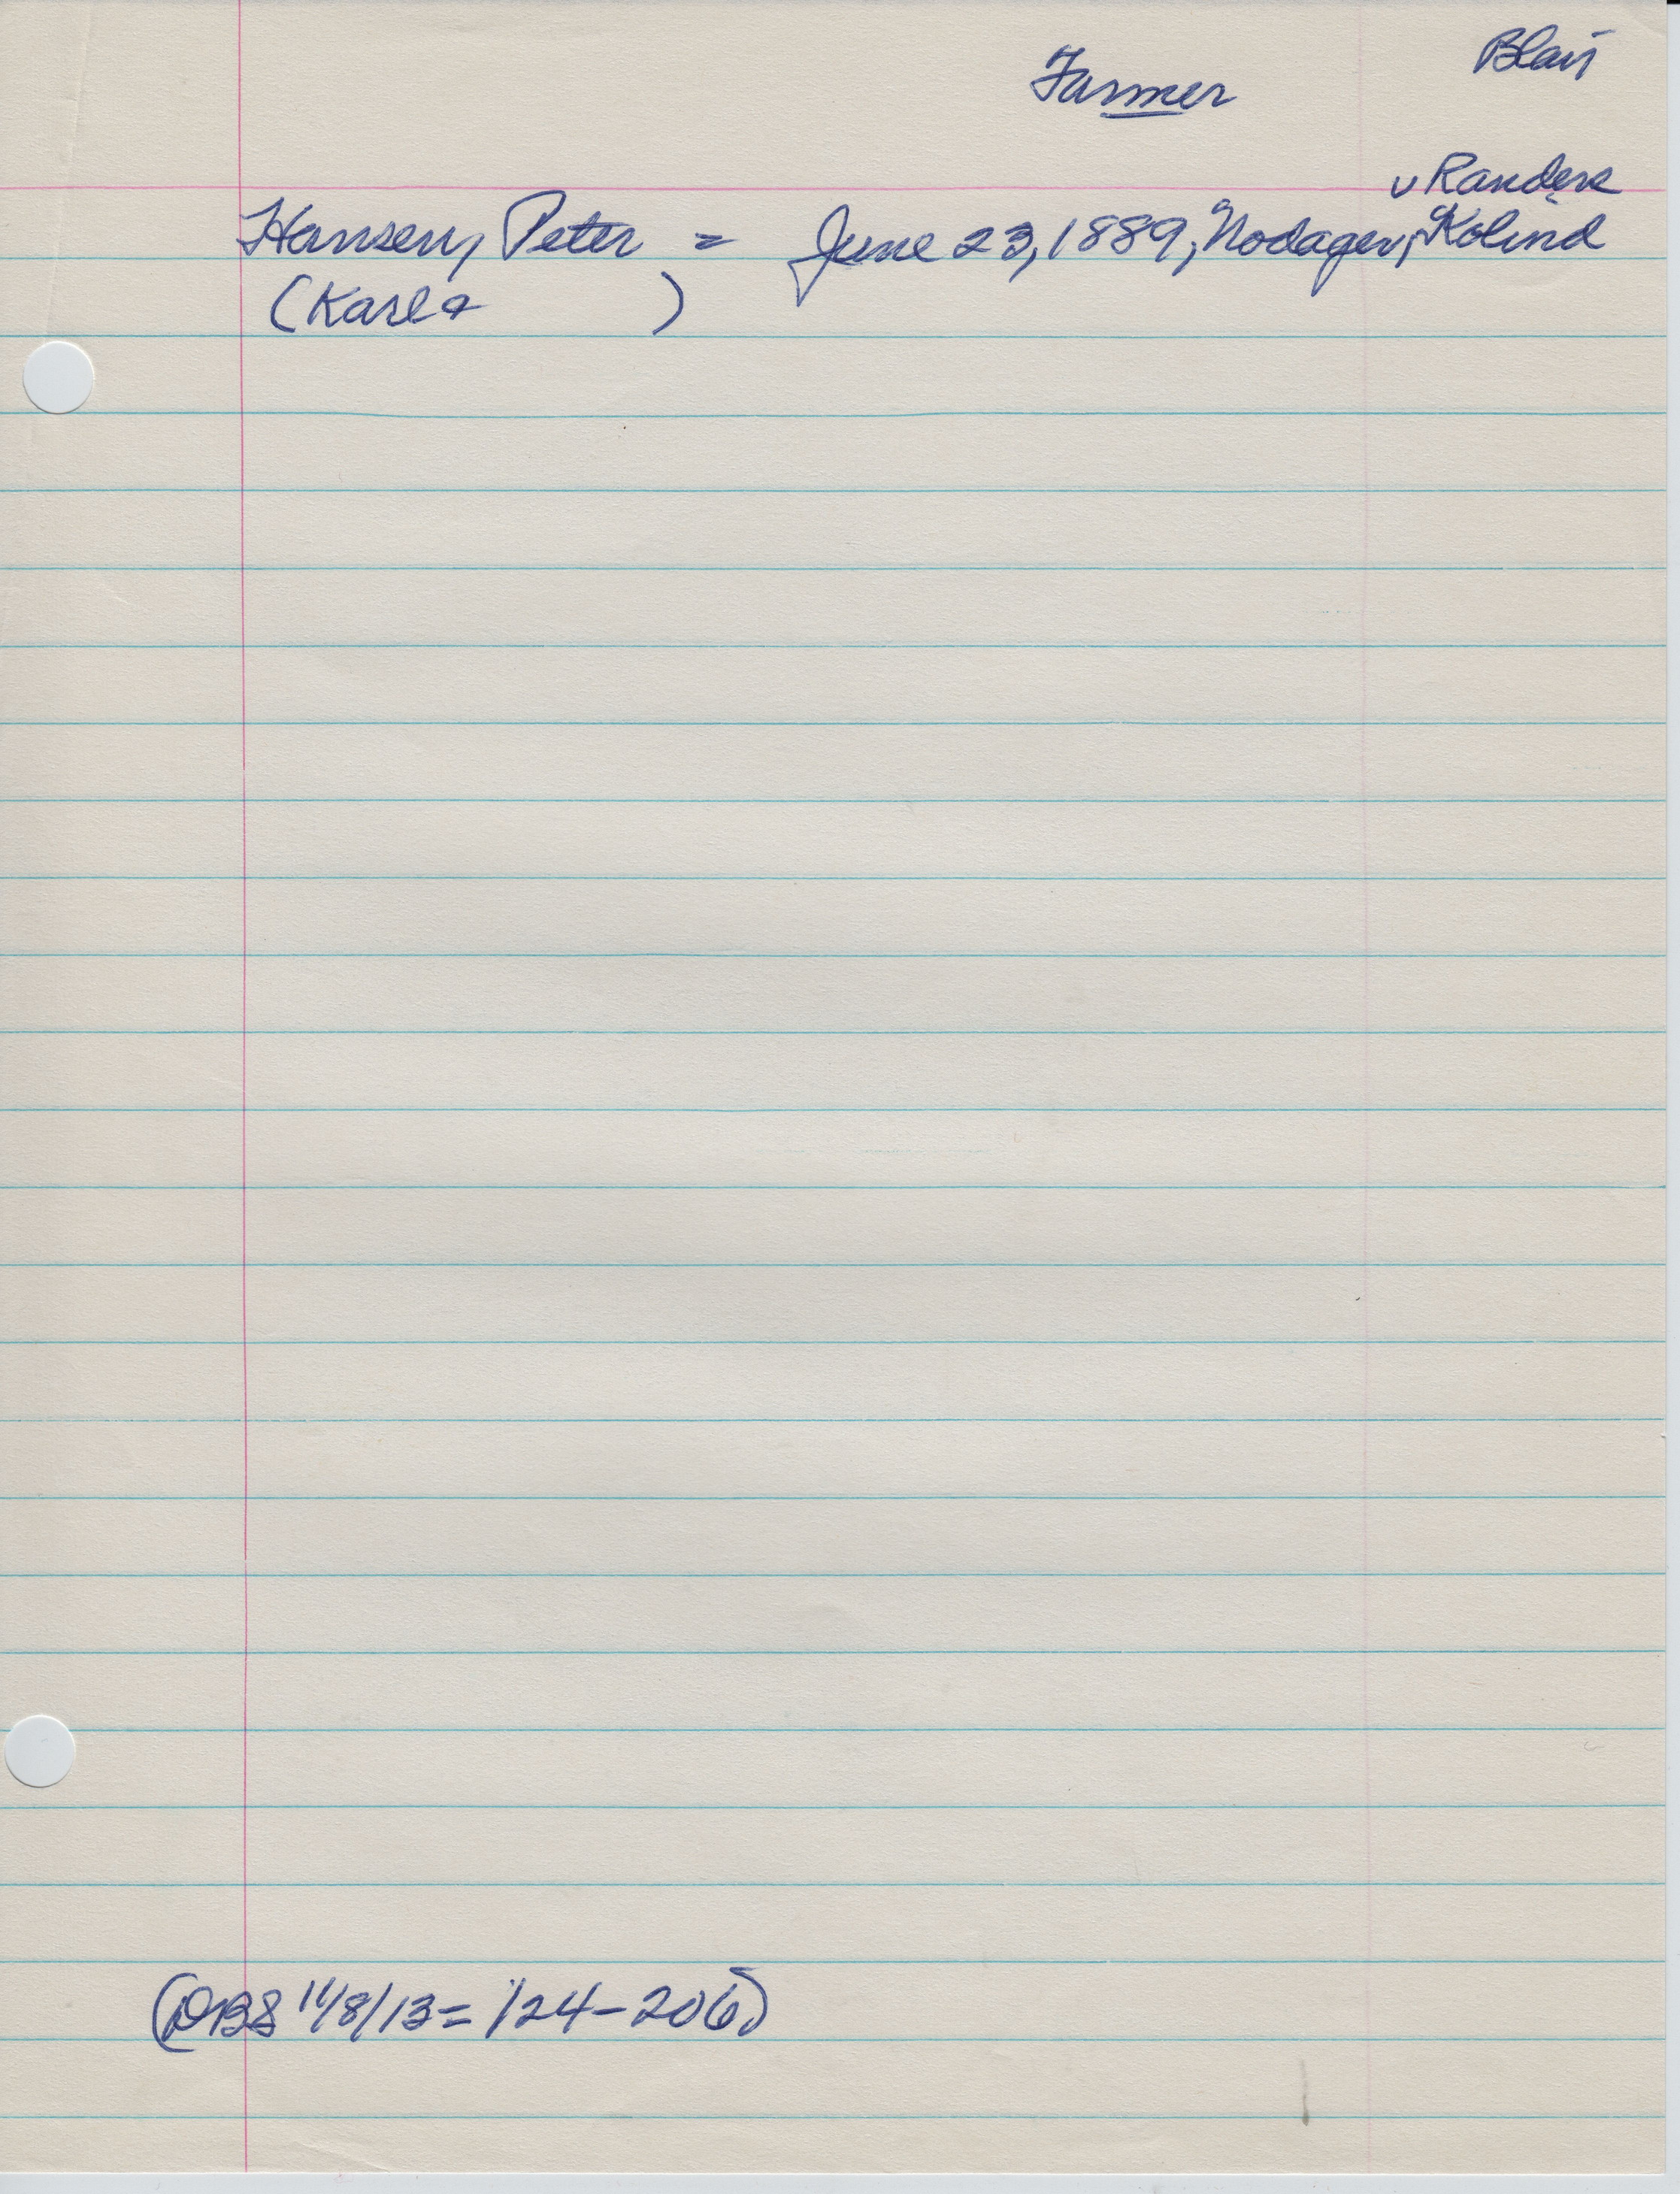 Blair
Farmer
v Randers
Hansen, Peter = June 23, 1889, Nodager, Kolind
(Karla )
(DBS 11/8/13 = 124-206)